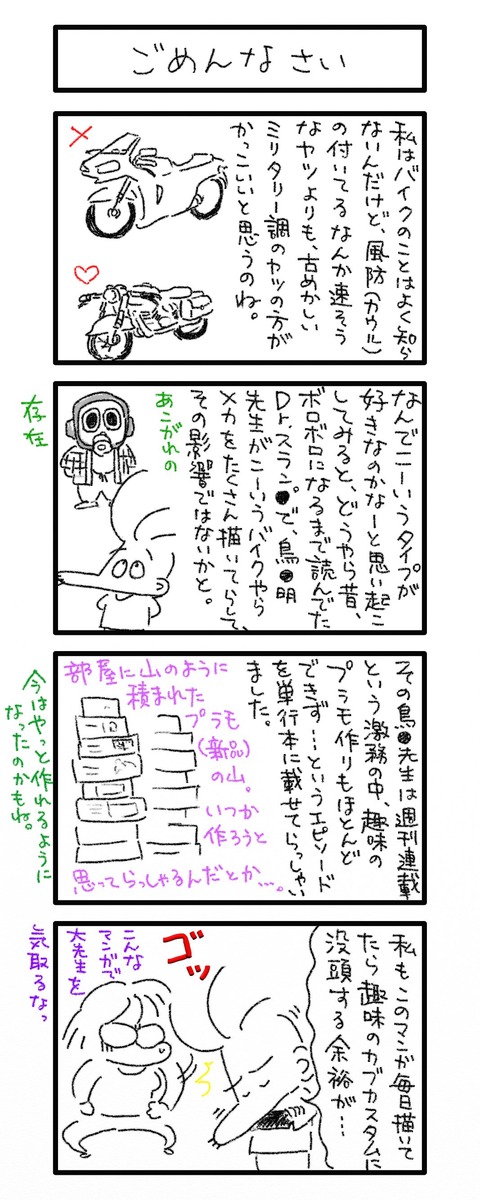 ごめんなさい
私はバイクのことはよく知ら
ないんだけど、風防(カウル)
の付いてるなんか速そう
なヤツよりも、古めかしい
ミリタリー調のヤツの方が
かっこいいと思うのね。
なんでこーいうタイプが
好きなのかなーと思い起こ
してみると、どうやら昔、
ボロボロになるまで読んでた
Dr.スラン●で、鳥●明
先生がこーいうバイクやら
メカをたくさん描いてらして、
その影響ではないかと。
あこがれの
存在
その鳥●先生は週刊連載
という激務の中、趣味の
プラモ作りもほとんど
できず…というエピソード
を単行本に載せてらっしゃい
ました。
部屋に山のように
積まれた
プラモ
(新品)
の山。
いつか
作ろうと
思ってらっしゃるんだとか…。
今はやっと作れるように
なったのかもね。
私もこのマンガ毎日描いて
たら趣味のカブカスタムに
没頭する余裕が…
ゴッ
ろ
こんな
マンガで
大先生を
気取るなっ